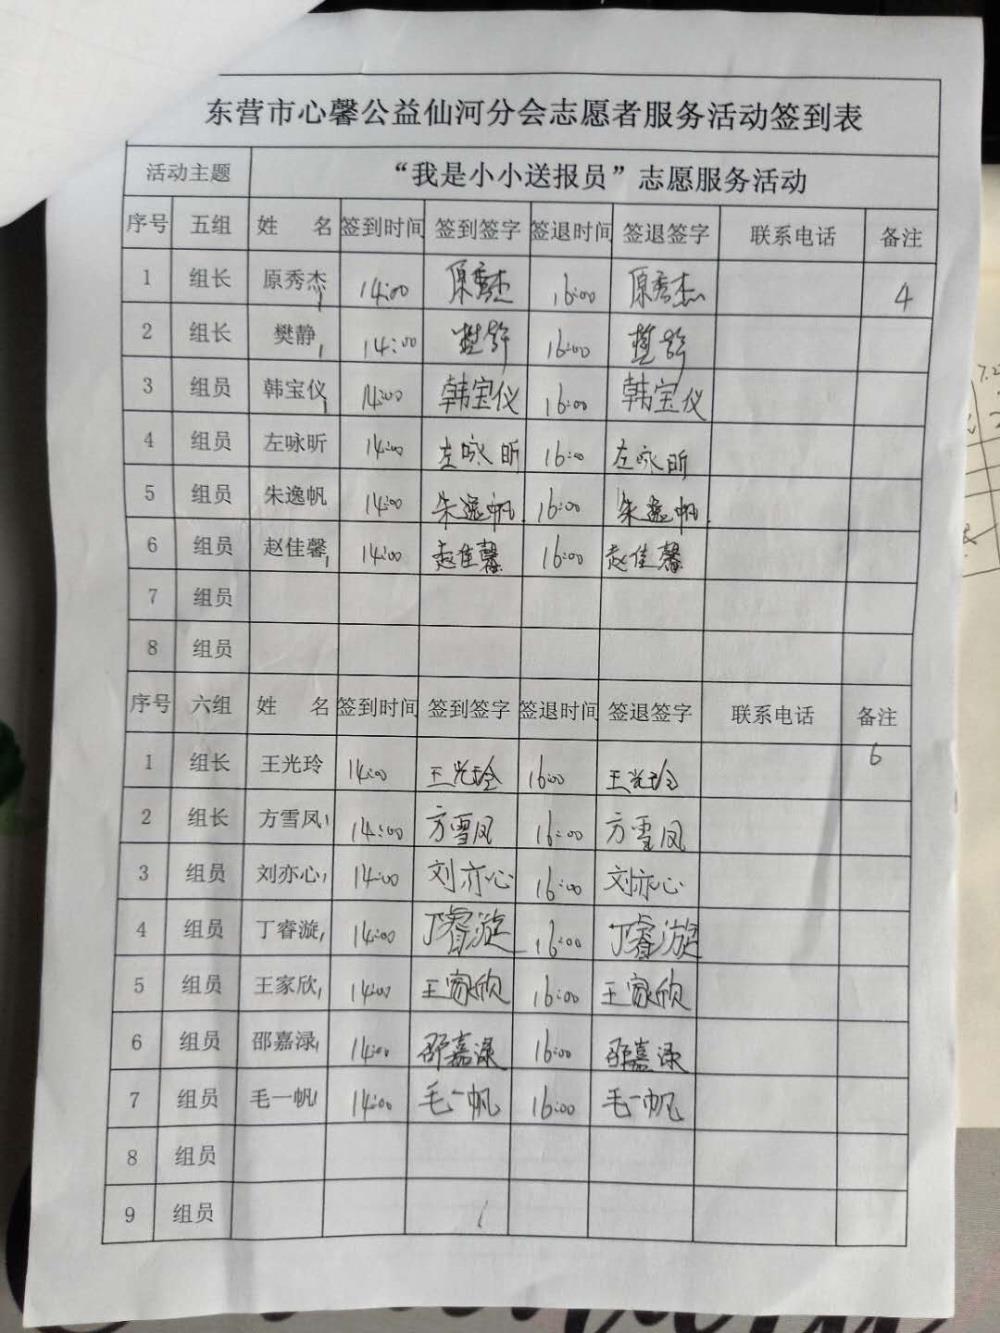 东营市心馨公益仙河分会志愿者服务活动签到表
活动主题 “我是小小送报员”志愿服务活动
序号 五组 姓 名 签到时间 签到签字 签退时间 签退签字 联系电话 备注
1 组长 原秀杰 14:00 原秀杰 16:00 原秀杰 4
2 组长 樊静 14:00 樊静 16:00 樊静
3 组员 韩宝仪 14:00 韩宝仪 16:00 韩宝仪
4 组员 左咏昕 14:00 左咏昕 16:00 左咏昕
5 组员 朱逸帆 14:00 朱逸帆 16:00 朱逸帆
6 组员 赵佳馨 14:00 赵佳馨 16:00 赵佳馨
7 组员
8 组员
序号 六组 姓 名 签到时间 签到签字 签退时间 签退签字 联系电话 备注
1 组长 王光玲 14:00 王光玲 16:00 王光玲 6
2 组长 方雪凤 14:00 方雪凤 16:00 方雪凤
3 组员 刘亦心 14:00 刘亦心 16:00 刘亦心
4 组员 丁睿漩 14:00 丁睿漩 16:00 丁睿漩
5 组员 王家欣 14:00 王家欣 16:00 王家欣
6 组员 邵嘉渌 14:00 邵嘉渌 16:00 邵嘉渌
7 组员 毛一帆 14:00 毛一帆 16:00 毛一帆
8 组员
9 组员